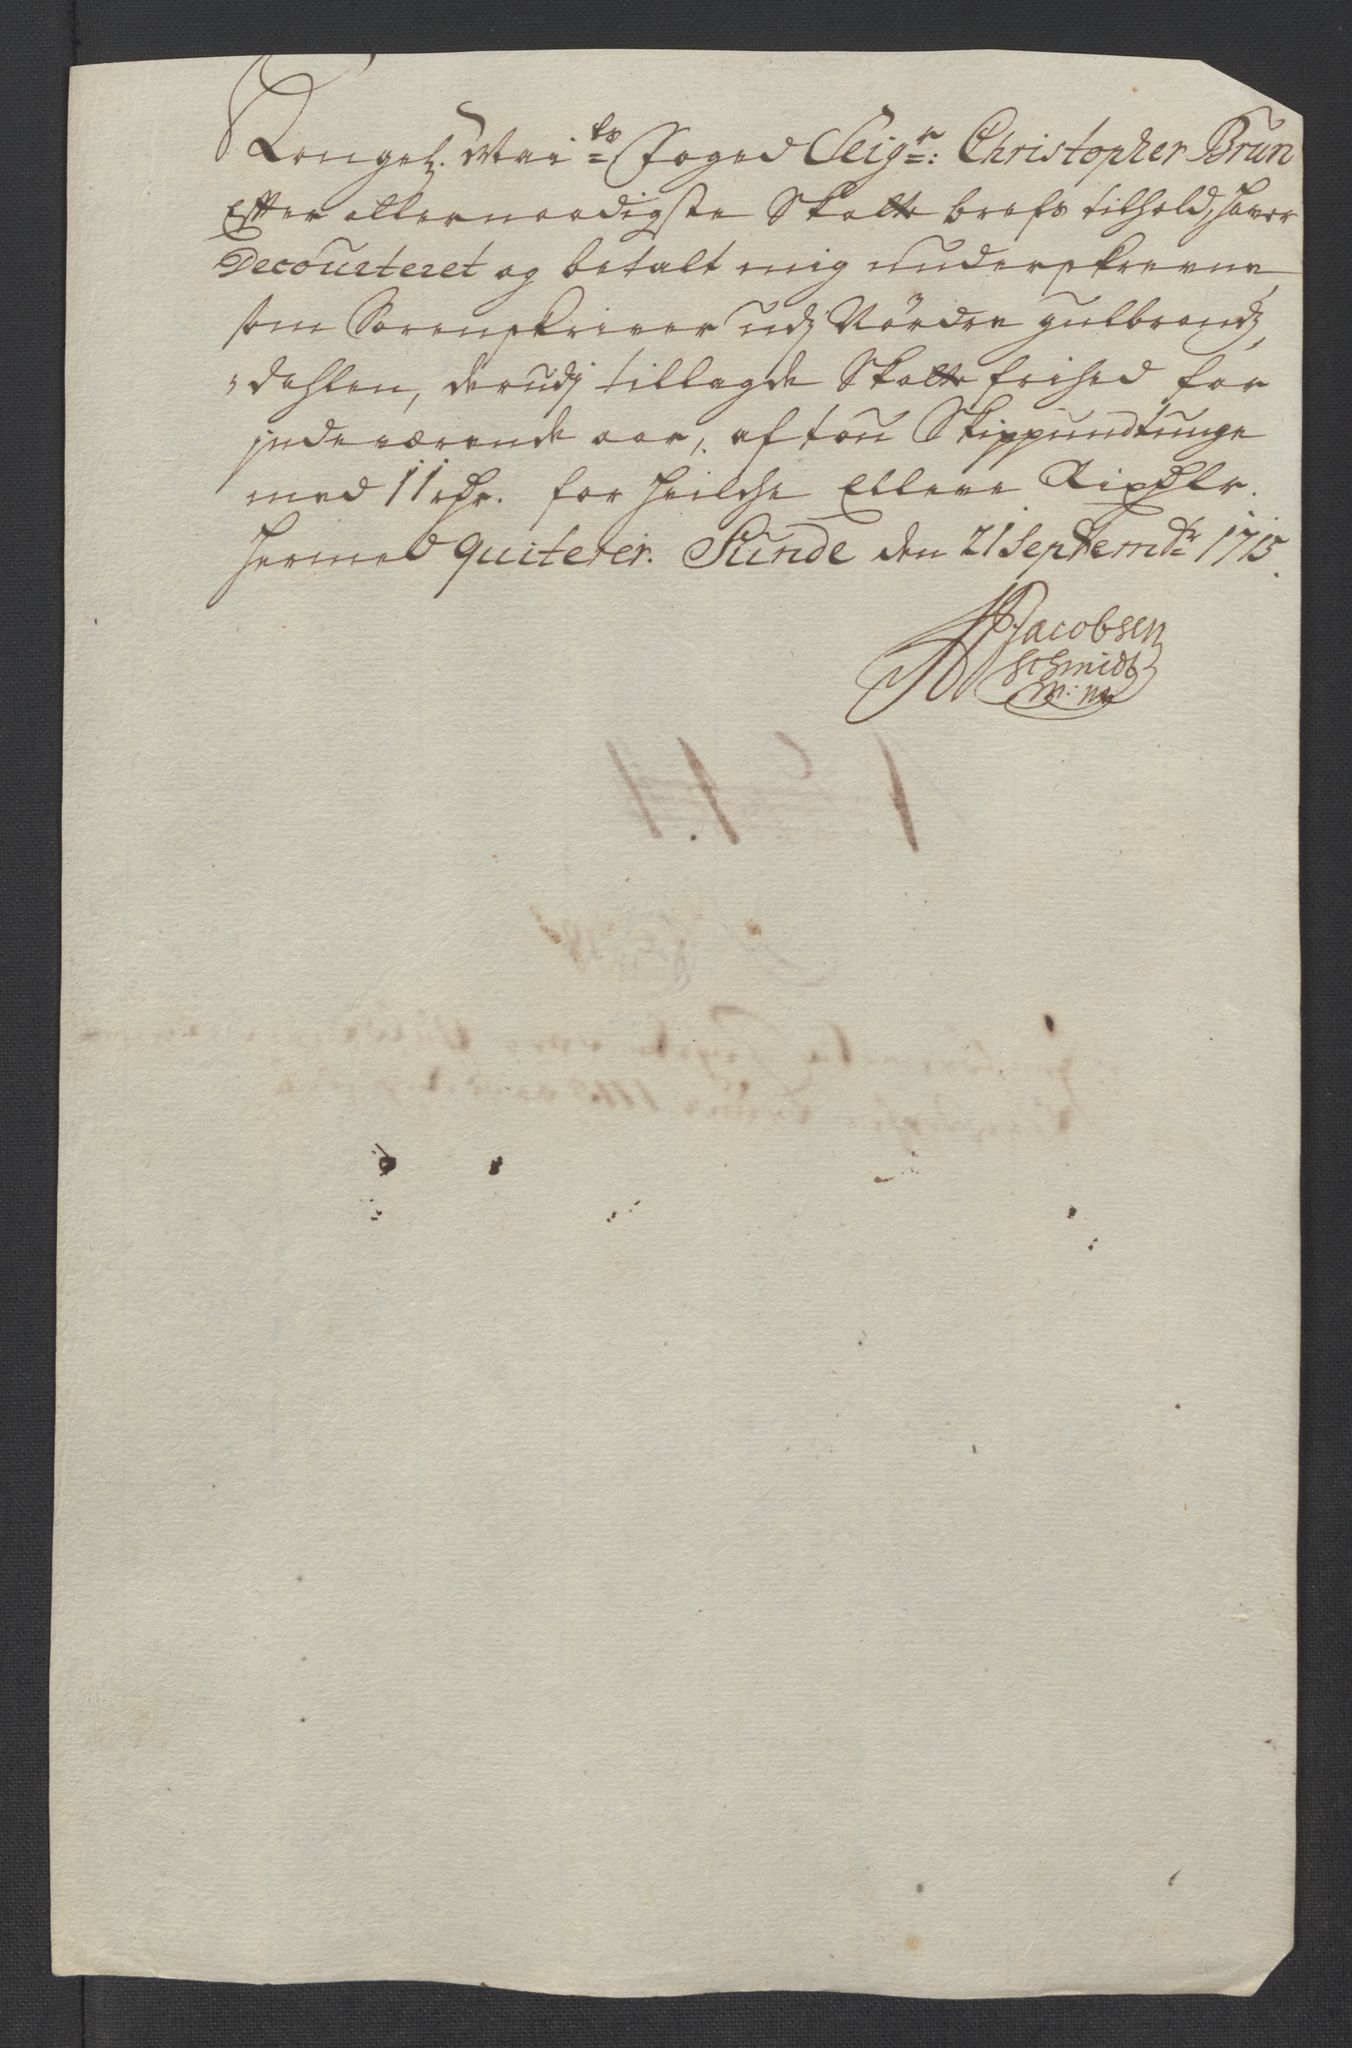 Kongel. Mai^ts Foged Seig^r: Christopher Brun
Efter allernaadigste Skatte brefs tilhold, haver
Decourteret og betalt mig underskrevne
som Sorenskriver udj Nørdre gulbrands
dahlen, derudj tillagde Skatte frihed for
indeværende aar, af tou Skippundtunge
med 11 rdr. for heilche Elleve Rixdlr.
hermed quiterer. Sunde den 21 Septembr 1715.
Jacobsen
Schmidt
m: m